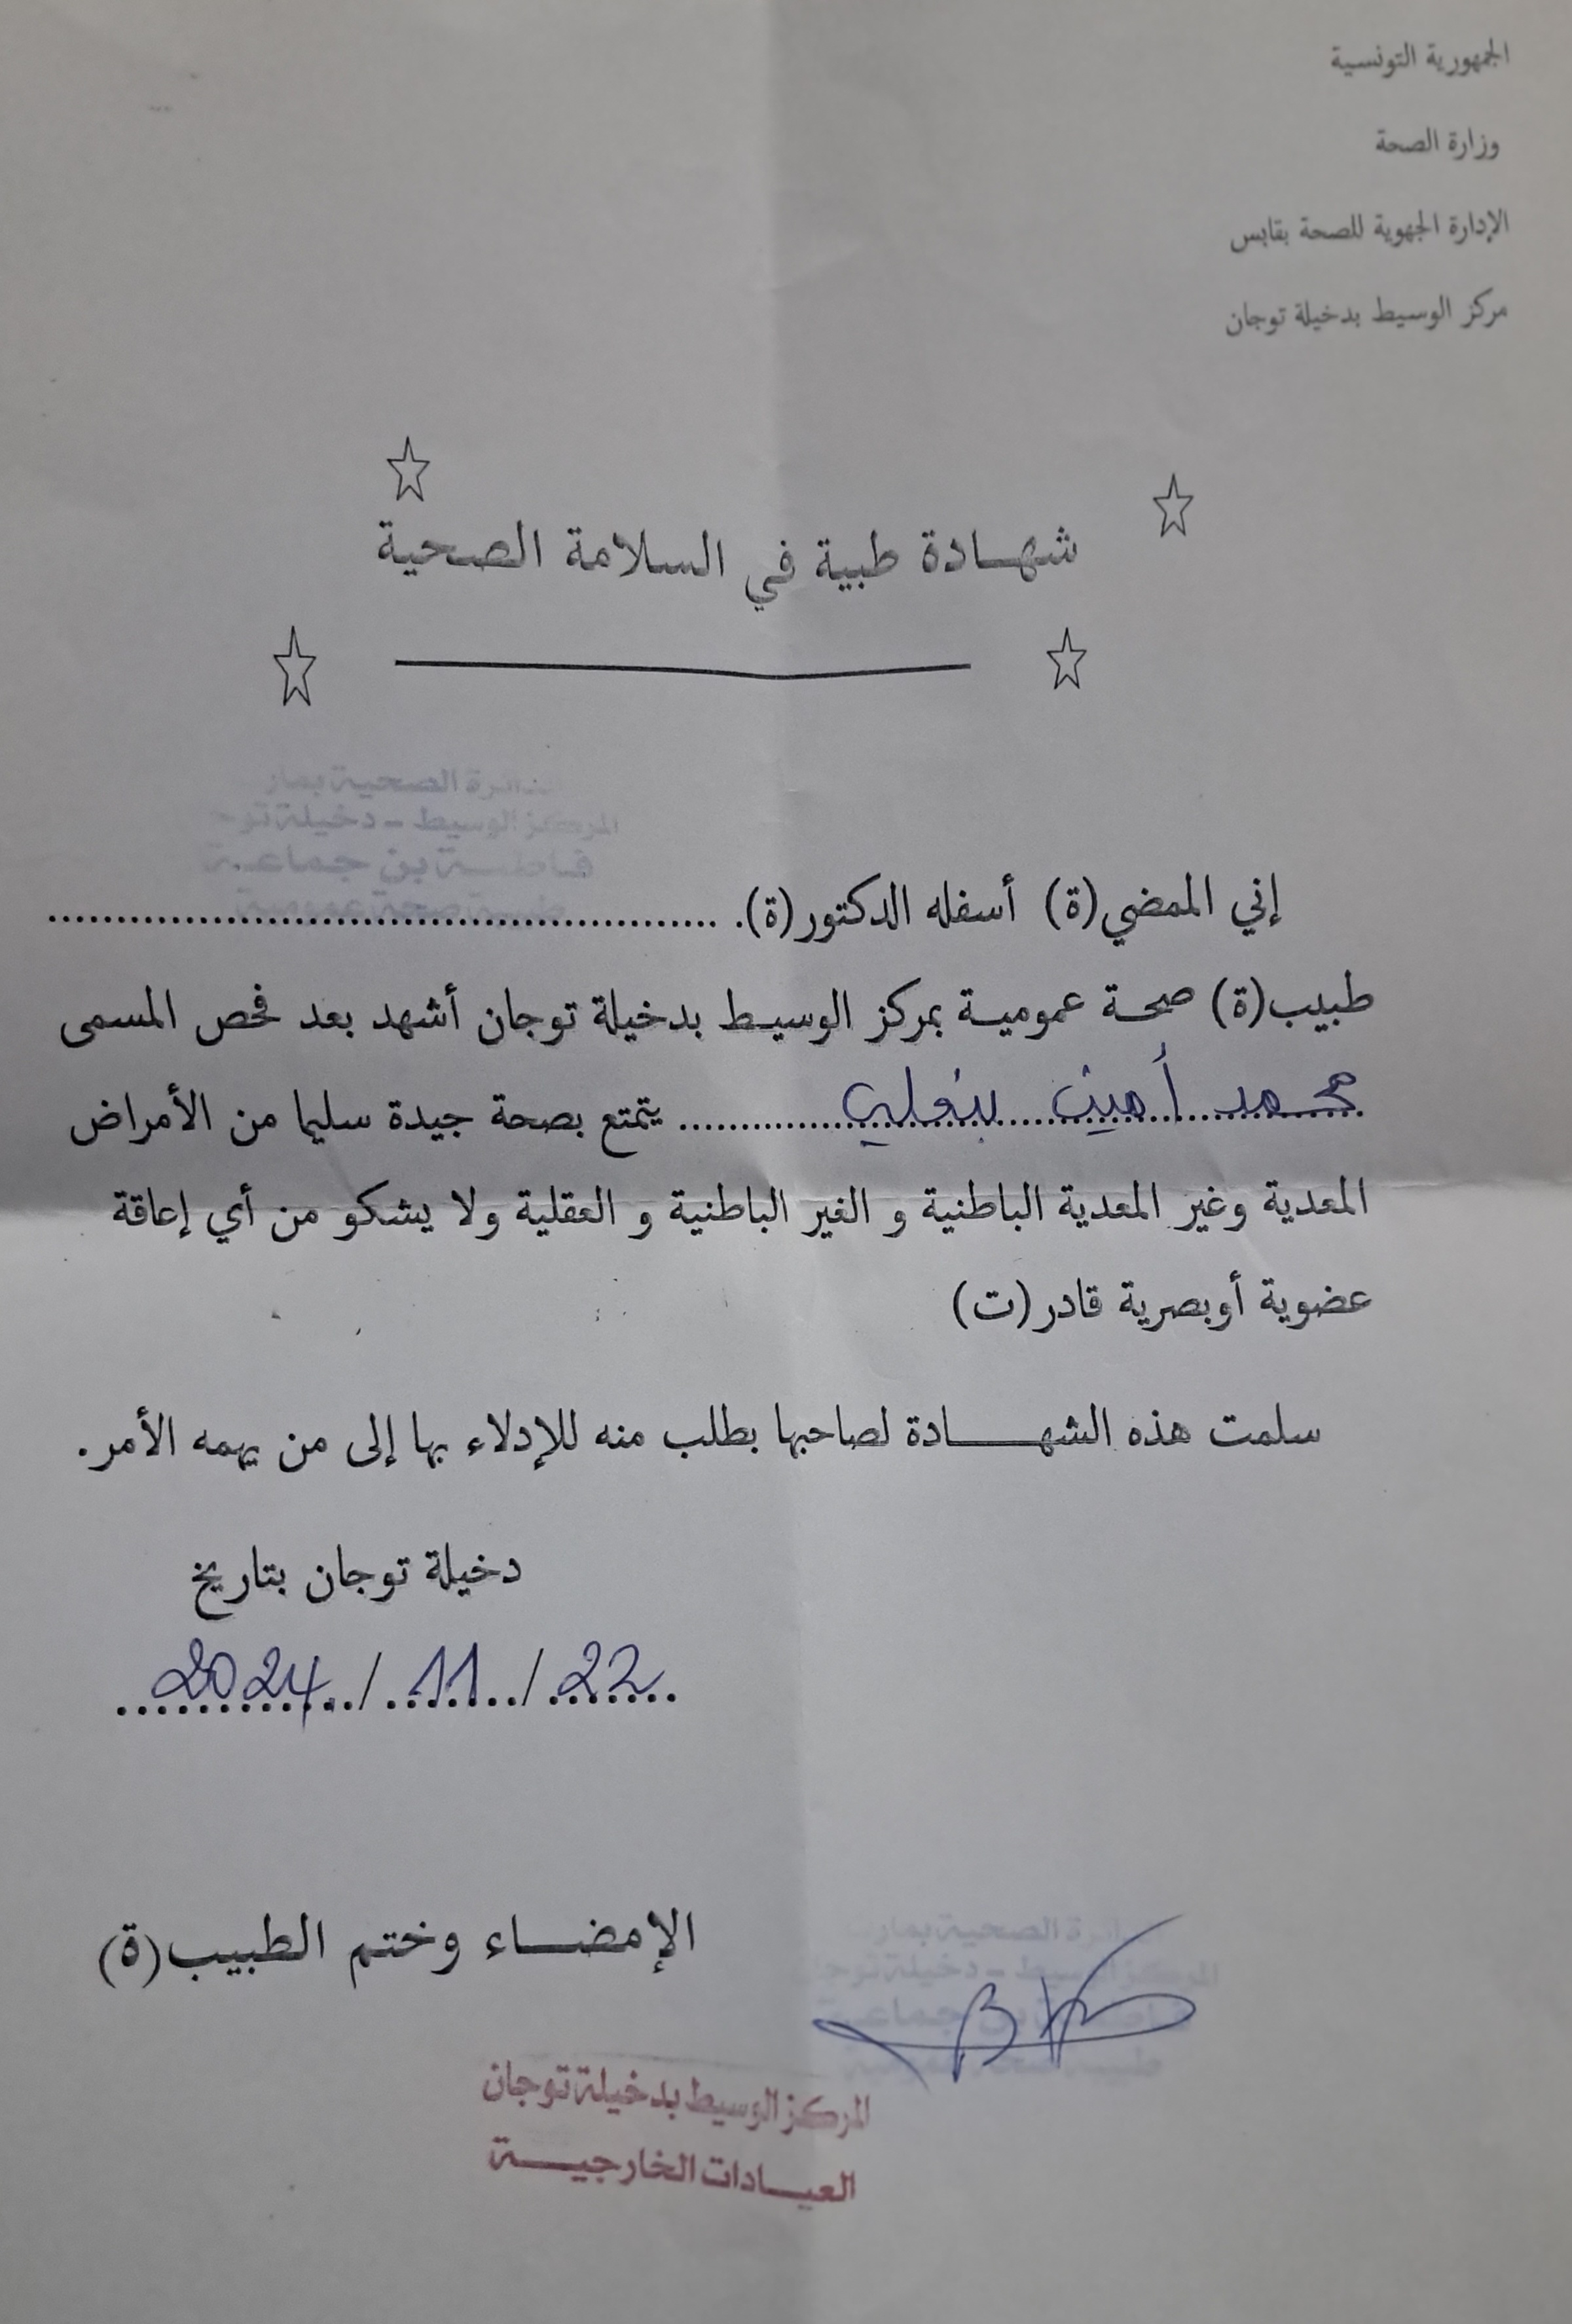 الجمهورية التونسية
وزارة الصحة
الإدارة الجهوية للصحة بقابس
مركز الوسيط بدخيلة توجان
شهادة طبية في السلامة الصحية
الصحية بمار
المركز الوسيط - دخيلة توج
بن جماعة
إني الممضي(ة) أسفله الدكتور(ة).
طبيب(ة) صحة عمومية بمركز الوسيط بدخيلة توجان أشهد بعد فحص المسمى
محمد أمين بنعلي يتمتع بصحة جيدة سليما من الأمراض
المعدية وغير المعدية الباطنية و الغير الباطنية و العقلية ولا يشكو من أي إعاقة
عضوية أوبصرية قادر(ت)
سلمت هذه الشهادة لصاحبها بطلب منه للإدلاء بها إلى من يهمه الأمر.
دخيلة توجان بتاريخ
22/11/2024
الإمضاء وختم الطبيب(ة)
الصحية بمار
المركز الوسيط - دخيلة توجا
جماعة
المركز الوسيط بدخيلة توجان
العيادات الخارجية